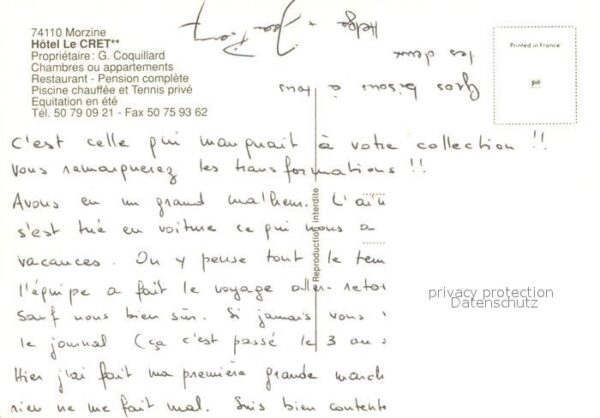 74110 Morzine
Hôtel Le CRET**
Propriétaire : G. Coquillard
Chambres ou appartements
Restaurant - Pension complète
Piscine chauffée et Tennis privé
Equitation en été
Tél. 50 79 09 21 - Fax 50 75 93 62
Printed in France
C'est celle qui manquait à votre collection !!
Vous remarquerez les transformations !!
Avons eu un grand malheur. L'aîn
s'est tué en voiture ce qui nous a
vacances. On y pense tout le tem
l'équipe a fait le voyage aller-retou
Sauf nous bien sûr. Si jamais vous
le journal (ça c'est passé le 3 au s
Hier j'ai fait ma première grande march
rien ne me fait mal. Suis bien contente
Gros bisous à tous
les deux
Helga
Reproduction interdite
privacy protection
Datenschutz